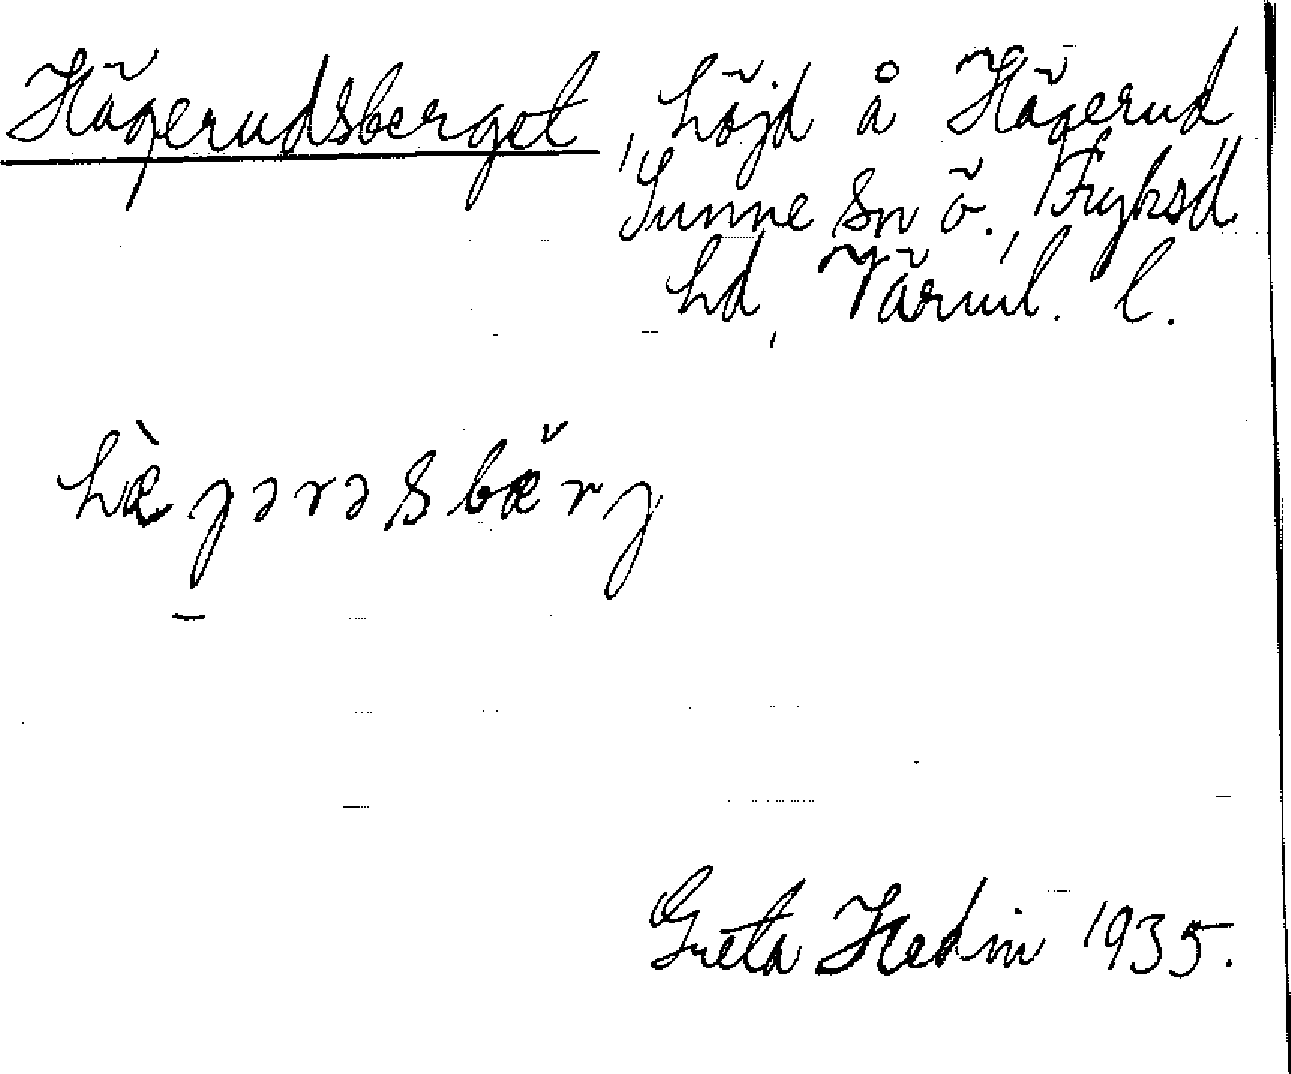 Hägerudsberget, höjd å Hägerud,
Sunne sn ö., Fryksd
hd, Värml. l.
hæ̀gərəsbæ̌rg
Greta Hedin 1935.